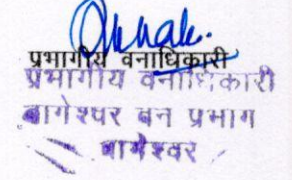 प्रभागीय वनाधिकारी
प्रभागीय वनाधिकारी
बागेश्वर वन प्रभाग
बागेश्वर